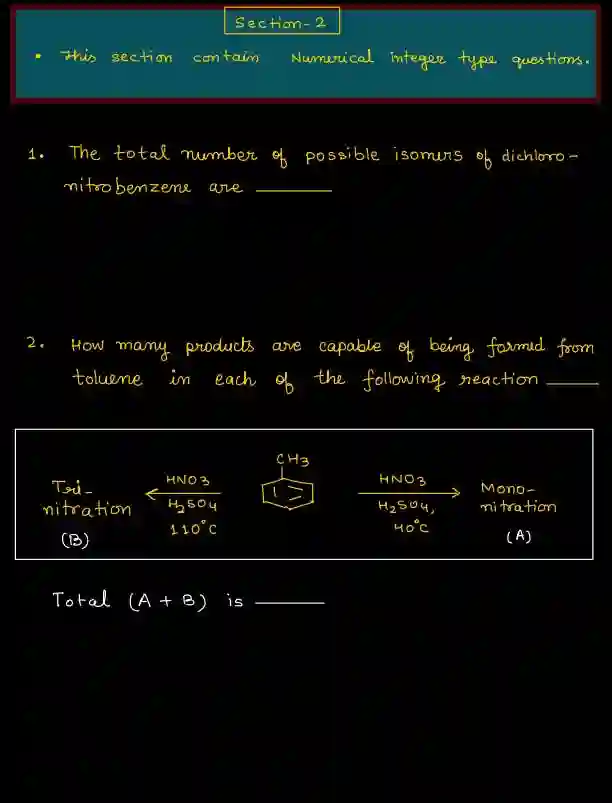 Section-2
• This section contain Numerical integer type questions.
1. The total number of possible isomers of dichloro-
nitrobenzene are ______
2. How many products are capable of being formed from
toluene in each of the following reaction ______
CH3
Tri-
nitration
(B)
HNO3
H2SO4
110°C
HNO3
H2SO4,
40°C
Mono-
nitration
(A)
Total (A + B) is ______